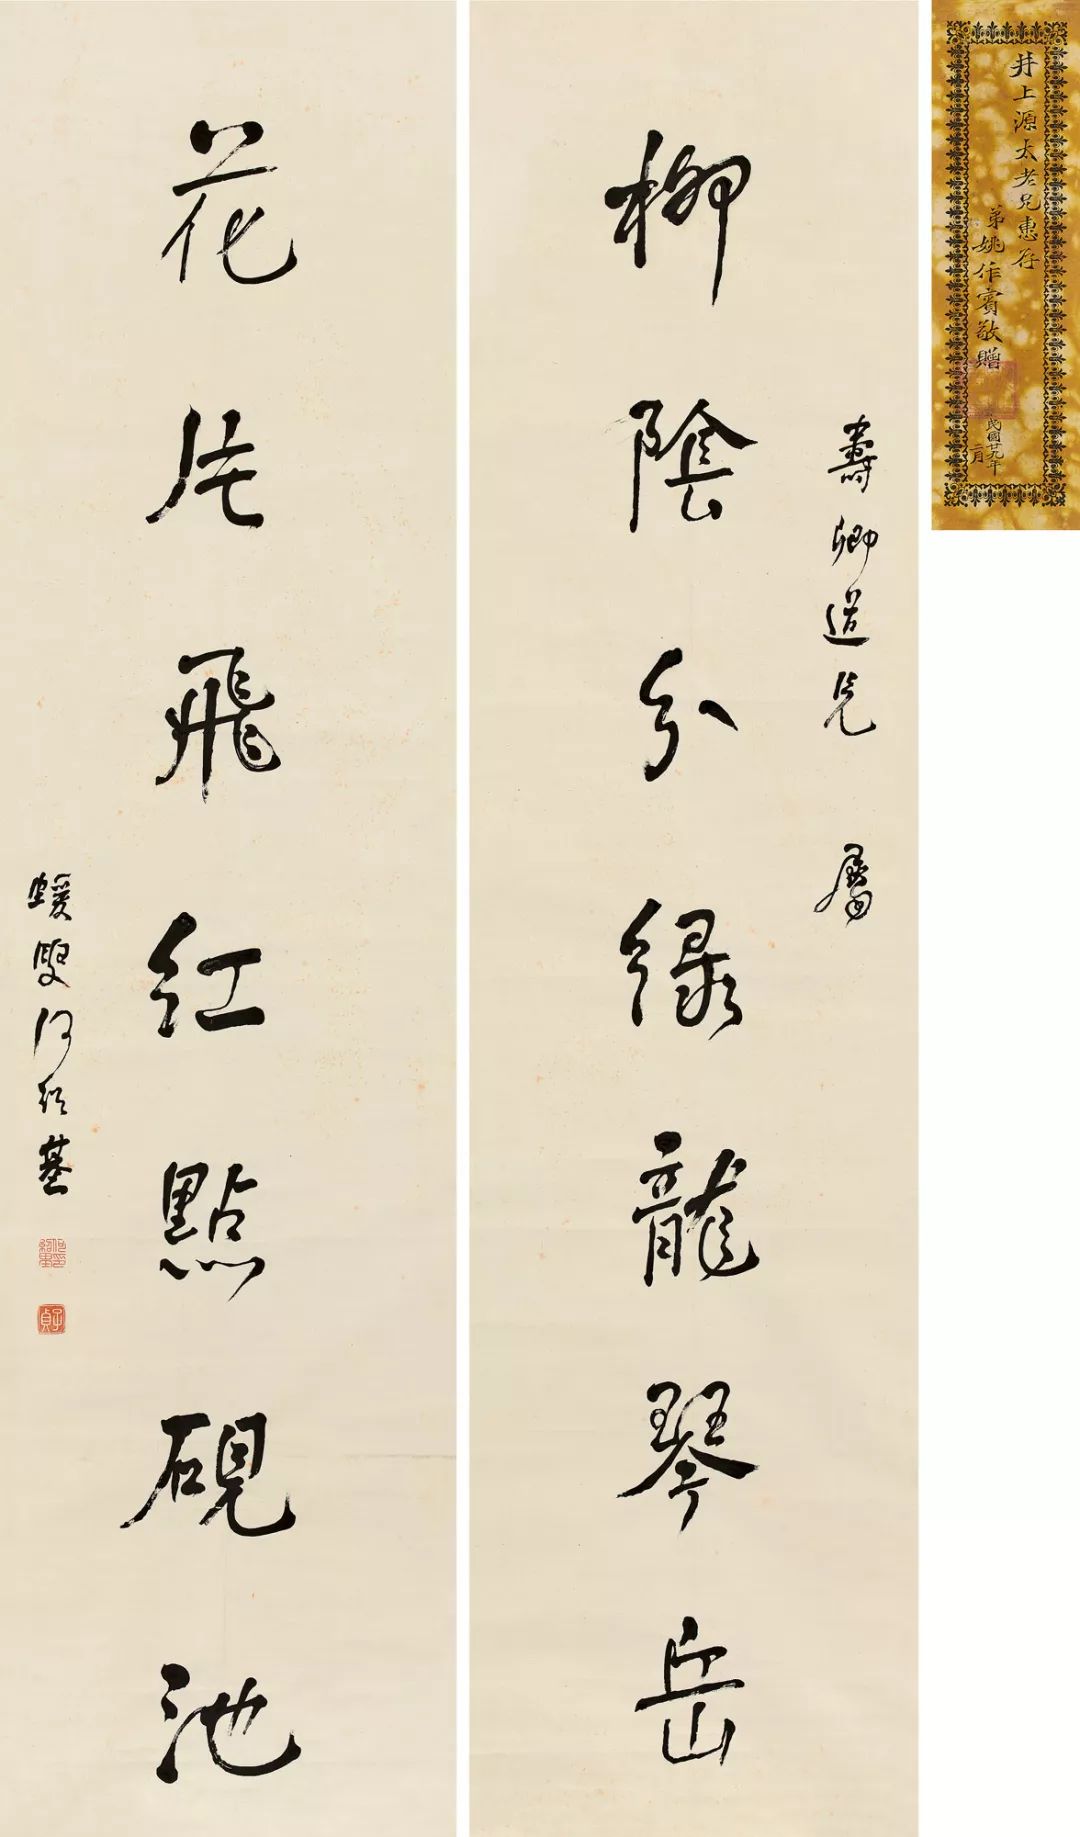 壽卿道兄 屬
柳陰分綠龍琴岳
花片飛紅點硯池
蝯叟何紹基
子貞
井上源太老兄惠存
弟姚作賓敬贈
民國廿九年
二月